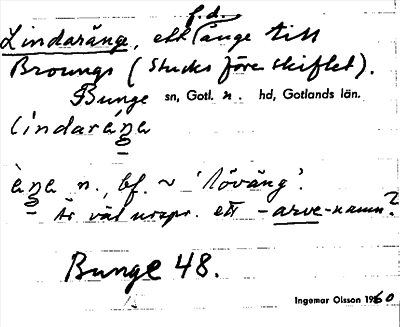 f.d.
Lindaränge, ett änge till
Broungs (Stucks före skiftet).
Bunge sn, Gotl. n. hd, Gotlands län.
lindaráŋa
àŋa n., bf. ~ 'löväng'.
Är väl urspr. ett -arve-namn?
Bunge 48.
Ingemar Olsson 1960